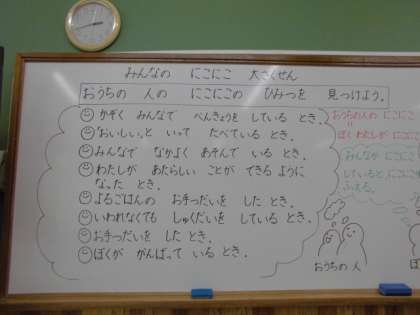 みんなの にこにこ 大さくせん
おうちの 人の にこにこの ひみつを 見つけよう。
かぞく みんなで べんきょうを している とき。
おいしい。と いって たべている とき。
みんなで なかよく あそんで いる とき。
わたしが あたらしい ことが できる ように
なった とき。
よるごはんの お手つだいを した とき。
いわれなくても しゅくだいを している とき。
お手つだいを した とき。
ぼくが がんばって いる とき。
おうちの人の にこにこ
ぼく わたしが にこにこ
みんなが にこにこ
していると にこにこが
ふえる。
おうちの 人
ぼ